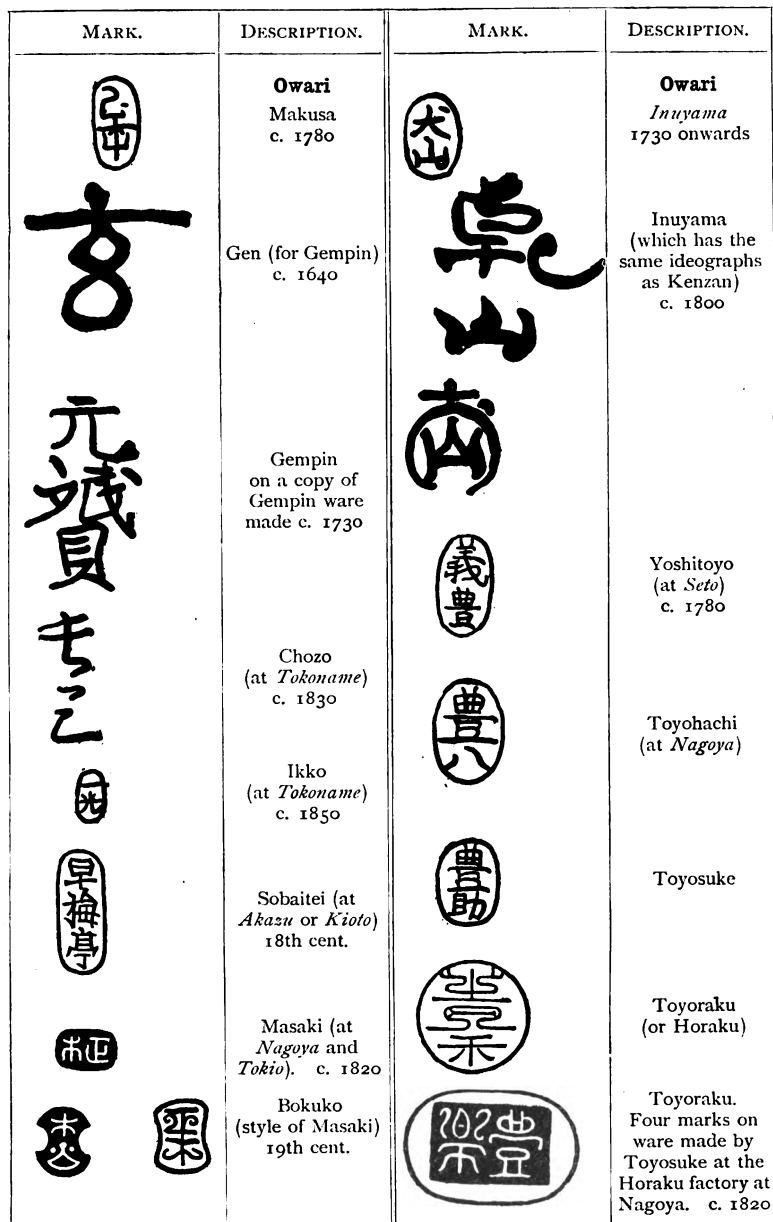 MARK.
DESCRIPTION.
Owari
Makusa
c. 1780
玄
Gen (for Gempin)
c. 1640
元
贇
Gempin
on a copy of
Gempin ware
made c. 1730
Chozo
(at Tokoname)
c. 1830
一光
Ikko
(at Tokoname)
c. 1850
早梅亭
Sobaitei (at
Akazu or Kioto)
18th cent.
正木
Masaki (at
Nagoya and
Tokio). c. 1820
Bokuko
(style of Masaki)
19th cent.
MARK.
DESCRIPTION.
Owari
犬山
Inuyama
1730 onwards
乾
山
Inuyama
(which has the
same ideographs
as Kenzan)
c. 1800
義豊
Yoshitoyo
(at Seto)
c. 1780
豊八
Toyohachi
(at Nagoya)
豊助
Toyosuke
Toyoraku
(or Horaku)
豊樂
Toyoraku.
Four marks on
ware made by
Toyosuke at the
Horaku factory at
Nagoya. c. 1820